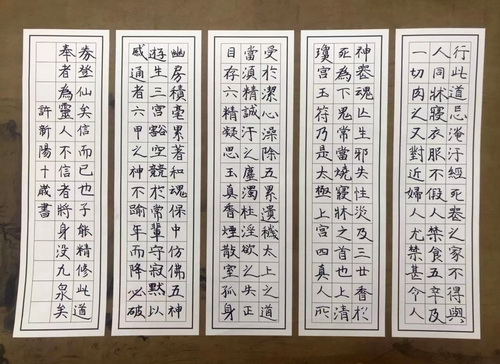 行此道忌淹汙經死喪之家不得與
人同牀寢衣服不假人禁食五辛及
一切肉之又對近婦人尤禁甚令人
神喪魂亡生邪失性災及三世香於
死為下鬼常當燒寢牀之首也上清
瓊宮玉符乃是太極上宮四真人所
受於潔心澡除五累遺穢太上之道
當須精誠汙之塵濁杜淫欲之失正
目存六精凝思玉真香煙散室孤身
幽房積毫累著和魂保中仿佛五神
遊生三宮豁空競於常輩守寂默以
感通者六甲之神不踰年而降必破
券登仙矣信而已也子能精修此道
奉者為靈人不信者將身没九泉矣
許新陽十歲書